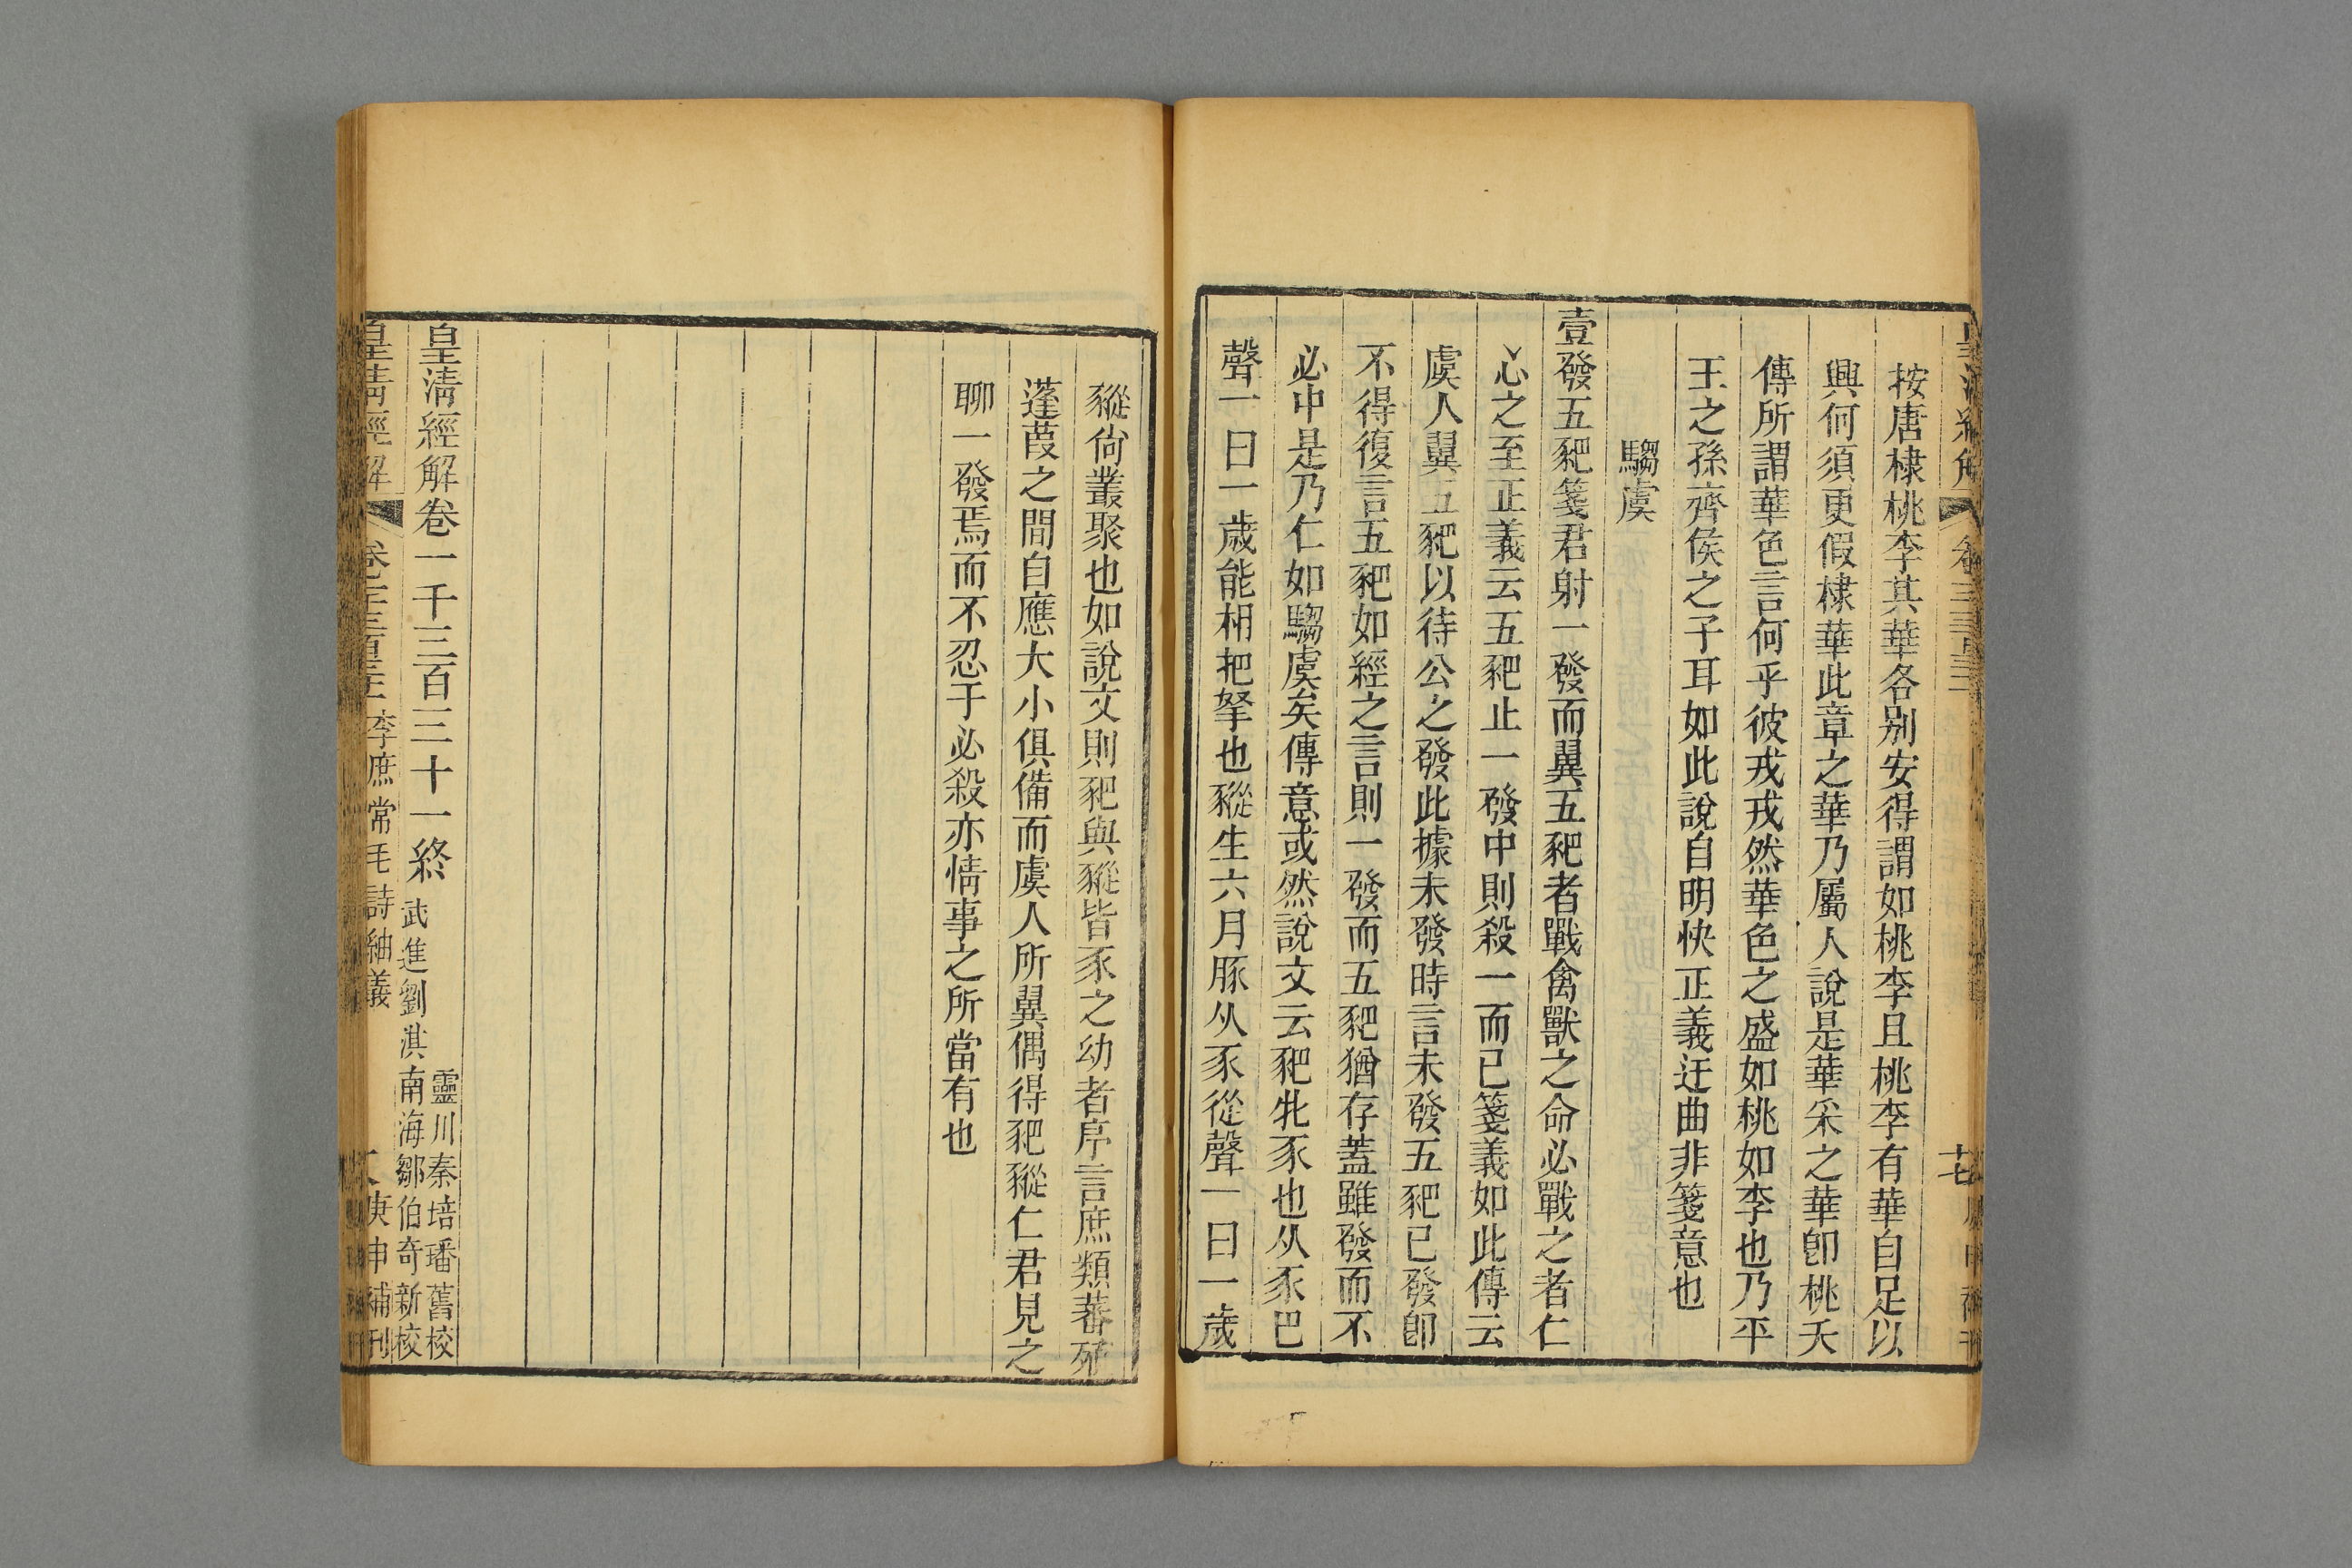 按唐棣桃李其華各别安得謂如桃李且桃李有華自足以
興何須更假棣華此章之華乃屬人說是華采之華卽桃夭
傳所謂華色言何乎彼戎戎然華色之盛如桃如李也乃平
王之孫齊侯之子耳如此說自明快正義迂曲非箋意也
騶虞
壹發五豝箋君射一發而翼五豝者戰禽獸之命必戰之者仁
心之至正義云五豝止一發中則殺一而已箋義如此傳云
虞人翼五豝以待公之發此據未發時言未發五豝已發卽
不得復言五豝如經之言則一發而五豝猶存蓋雖發而不
必中是乃仁如騶虞矣傳意或然說文云豝牝豕也从豕巴
聲一曰一歲能相把拏也豵生六月豚从豕從聲一曰一歲
豵尙叢聚也如說文則豝與豵皆豕之幼者序言庶類蕃殖
蓬葭之間自應大小俱備而虞人所翼偶得豝豵仁君見之
聊一發焉而不忍于必殺亦情事之所當有也
皇淸經解卷一千三百三十一終
靈川秦培璠舊校
武進劉淇南海鄒伯奇新校
皇淸經解
李庶常毛詩紬義
庚申補刊